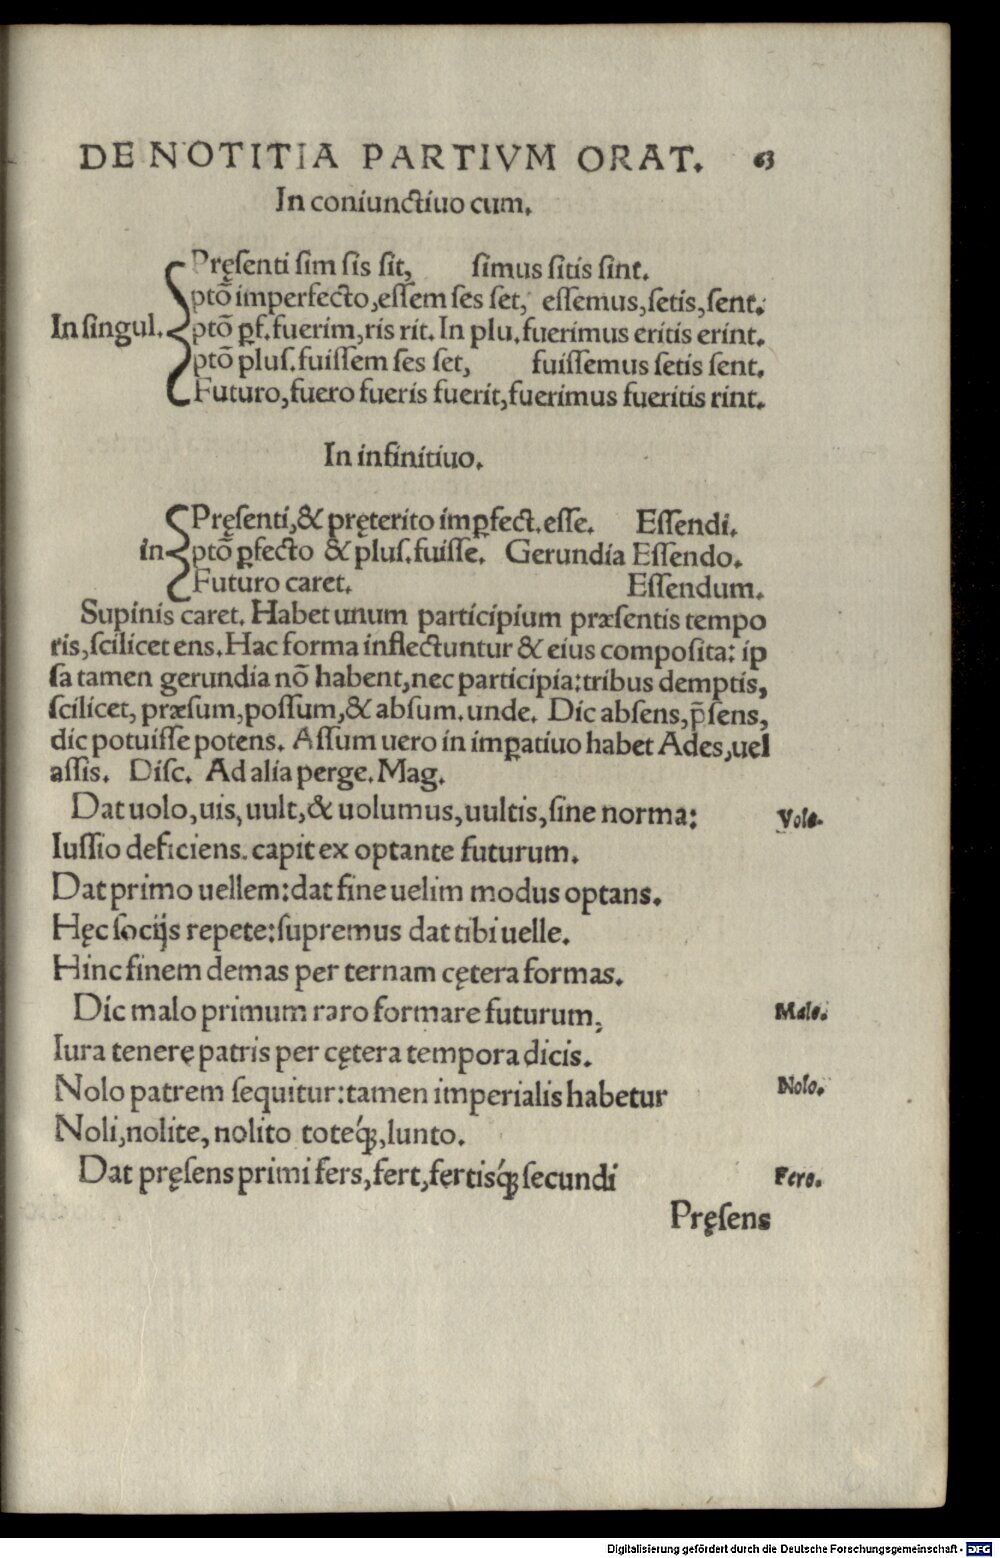 DE NOTITIA PARTIVM ORAT. 63
In coniunctiuo cum.
Pręſenti ſim ſis ſit, ſimus ſitis ſint.
ptō imperfecto, eſſem ſes ſet, eſſemus, ſetis, ſent.
In ſingul. ptō ꝑf. fuerim, ris rit. In plu. fuerimus eritis erint.
ptō pluſ. fuiſſem ſes ſet, fuiſſemus ſetis ſent.
Futuro, fuero fueris fuerit, fuerimus fueritis rint.
In infinitiuo.
Pręſenti, & pręterito imꝑfect. eſſe. Eſſendi.
in ptō ꝑfecto & pluſ. fuiſſe. Gerundia Eſſendo.
Futuro caret. Eſſendum.
Supinis caret. Habet unum participium præſentis tempo
ris, ſcilicet ens. Hac forma inflectuntur & eius compoſita: ip
ſa tamen gerundia nō habent, nec participia: tribus demptis,
ſcilicet, præſum, poſſum, & abſum. unde. Dic abſens, p̄ſens,
dic potuiſſe potens. Aſſum uero in imꝑatiuo habet Ades, uel
aſſis. Diſc. Ad alia perge. Mag.
Dat uolo, uis, uult, & uolumus, uultis, ſine norma: Volo.
Iuſſio deficiens. capit ex optante futurum.
Dat primo uellem: dat fine uelim modus optans.
Hęc ſocijs repete: ſupremus dat tibi uelle.
Hinc finem demas per ternam cętera formas.
Dic malo primum raro formare futurum. Malo.
Iura tenerę patris per cętera tempora dicis.
Nolo patrem ſequitur: tamen imperialis habetur Nolo.
Noli, nolite, nolito toteq́ꝫ, lunto.
Dat pręſens primi fers, fert, fertisq́ꝫ ſecundi Fero.
Pręſens
Digitalisierung gefördert durch die Deutsche Forschungsgemeinschaft - DFG